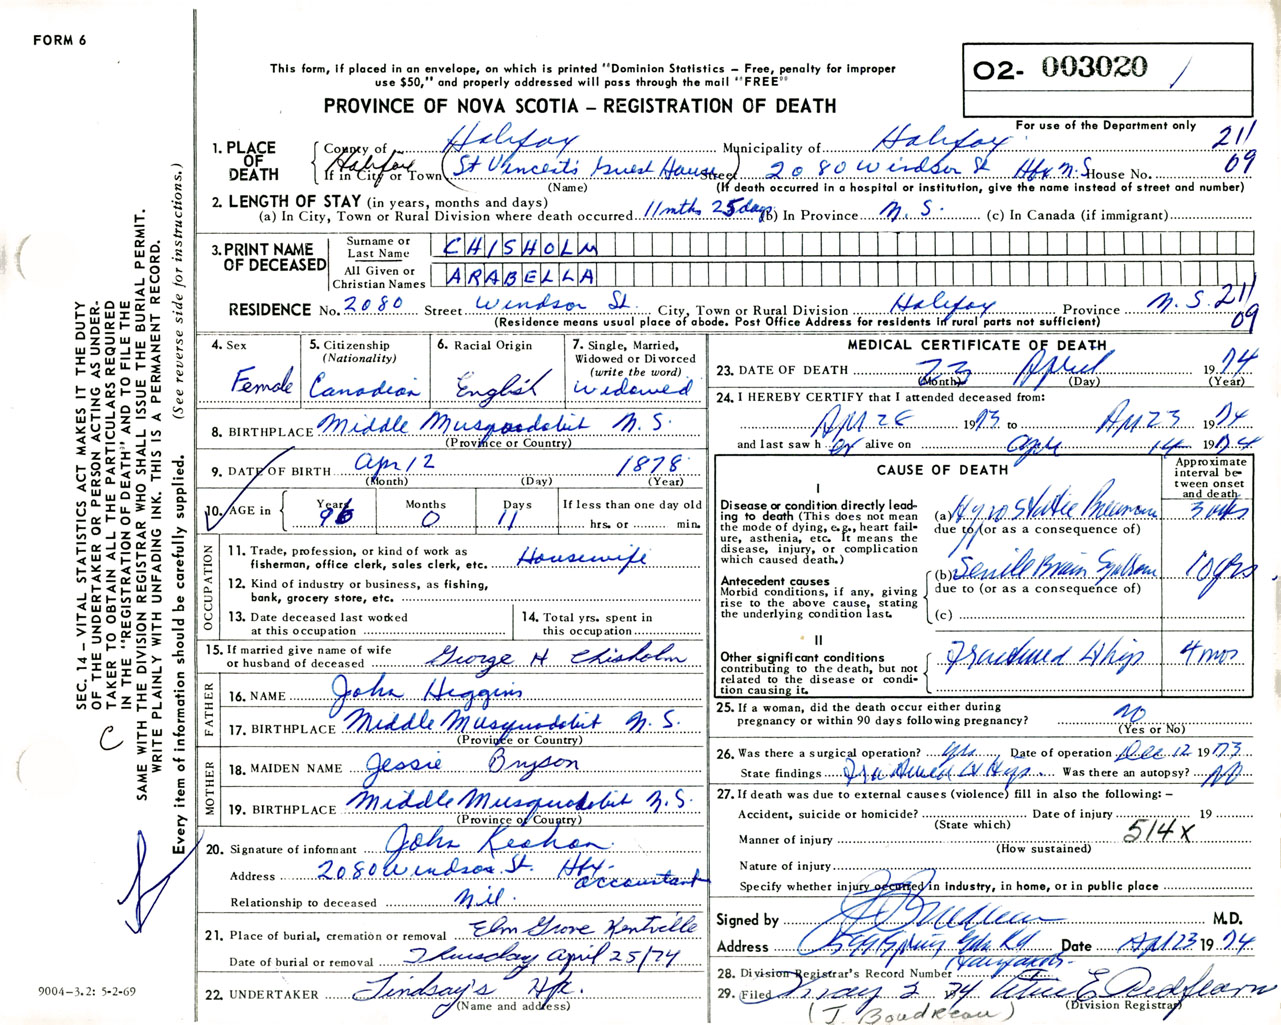 FORM 6
This form, if placed in an envelope, on which is printed "Dominion Statistics – Free, penalty for improper
use $50," and properly addressed will pass through the mail "FREE"
PROVINCE OF NOVA SCOTIA – REGISTRATION OF DEATH
O2- 003020 /
For use of the Department only
211
09
1. PLACE OF DEATH
County of Halifax Municipality of Halifax
Halifax
If in City or Town (St Vincent's Guest House) Street 2080 Windsor St Hfx N.S. House No.
(Name) (If death occurred in a hospital or institution, give the name instead of street and number)
2. LENGTH OF STAY (in years, months and days)
(a) In City, Town or Rural Division where death occurred 11 mths 25 days (b) In Province N.S. (c) In Canada (if immigrant)
3. PRINT NAME OF DECEASED
Surname or Last Name CHISHOLM
All Given or Christian Names ARABELLA
RESIDENCE No. 2080 Street Windsor St. City, Town or Rural Division Halifax Province N.S. 211
09
(Residence means usual place of abode. Post Office Address for residents in rural parts not sufficient)
4. Sex
Female
5. Citizenship
(Nationality)
Canadian
6. Racial Origin
English
7. Single, Married,
Widowed or Divorced
(write the word)
Widowed
8. BIRTHPLACE Middle Musquodobit N.S.
(Province or Country)
9. DATE OF BIRTH Apr 12 1878
(Month) (Day) (Year)
10. AGE in
Years 96
Months 0
Days 11
If less than one day old
hrs. or min.
OCCUPATION
11. Trade, profession, or kind of work as
fisherman, office clerk, sales clerk, etc. Housewife
12. Kind of industry or business, as fishing,
bank, grocery store, etc.
13. Date deceased last worked
at this occupation
14. Total yrs. spent in
this occupation
15. If married give name of wife
or husband of deceased George H Chisholm
FATHER
16. NAME John Higgins
17. BIRTHPLACE Middle Musquodobit N.S.
(Province or Country)
MOTHER
18. MAIDEN NAME Jessie Bryson
19. BIRTHPLACE Middle Musquodobit N.S.
(Province or Country)
20. Signature of informant John
Address 2080 Windsor St. Hfx.
accountant
Relationship to deceased Nil.
21. Place of burial, cremation or removal Elm Grove Kentville
Date of burial or removal Thursday April 25/74
22. UNDERTAKER Lindsay's Hfx.
(Name and address)
MEDICAL CERTIFICATE OF DEATH
23. DATE OF DEATH 23 April 1974
(Month) (Day) (Year)
24. I HEREBY CERTIFY that I attended deceased from:
Apr 28 1973 to Apr 23 1974
and last saw her alive on Apr 14 1974
CAUSE OF DEATH
Approximate
interval be-
tween onset
and death
I
Disease or condition directly lead-
ing to death (This does not mean
the mode of dying, e.g., heart fail-
ure, asthenia, etc. It means the
disease, injury, or complication
which caused death.)
(a)
due to (or as a consequence of)
Antecedent causes
Morbid conditions, if any, giving
rise to the above cause, stating
the underlying condition last.
(b) Senile Brain 10 yrs.
due to (or as a consequence of)
(c)
II
Other significant conditions
contributing to the death, but not
related to the disease or condi-
tion causing it.
Fractured Hip 4 mos
25. If a woman, did the death occur either during
pregnancy or within 90 days following pregnancy? no
(Yes or No)
26. Was there a surgical operation? yes Date of operation Dec 12 1973
State findings Fractured Hip Was there an autopsy? NO
27. If death was due to external causes (violence) fill in also the following: –
Accident, suicide or homicide? Date of injury 19
(State which)
Manner of injury 514X
(How sustained)
Nature of injury
Specify whether injury occurred in industry, in home, or in public place
Signed by M.D.
Address Date Apr 23 1974
28. Division Registrar's Record Number
29. Filed May 2 1974
(Division Registrar)
(J. Boudreau)
SEC. 14 – VITAL STATISTICS ACT MAKES IT THE DUTY
OF THE UNDERTAKER OR PERSON ACTING AS UNDER-
TAKER TO OBTAIN ALL THE PARTICULARS REQUIRED
IN THE "REGISTRATION OF DEATH" AND TO FILE THE
SAME WITH THE DIVISION REGISTRAR WHO SHALL ISSUE THE BURIAL PERMIT.
WRITE PLAINLY WITH UNFADING INK. THIS IS A PERMANENT RECORD.
Every item of information should be carefully supplied. (See reverse side for instructions.)
C
9004-3.2: 5-2-69